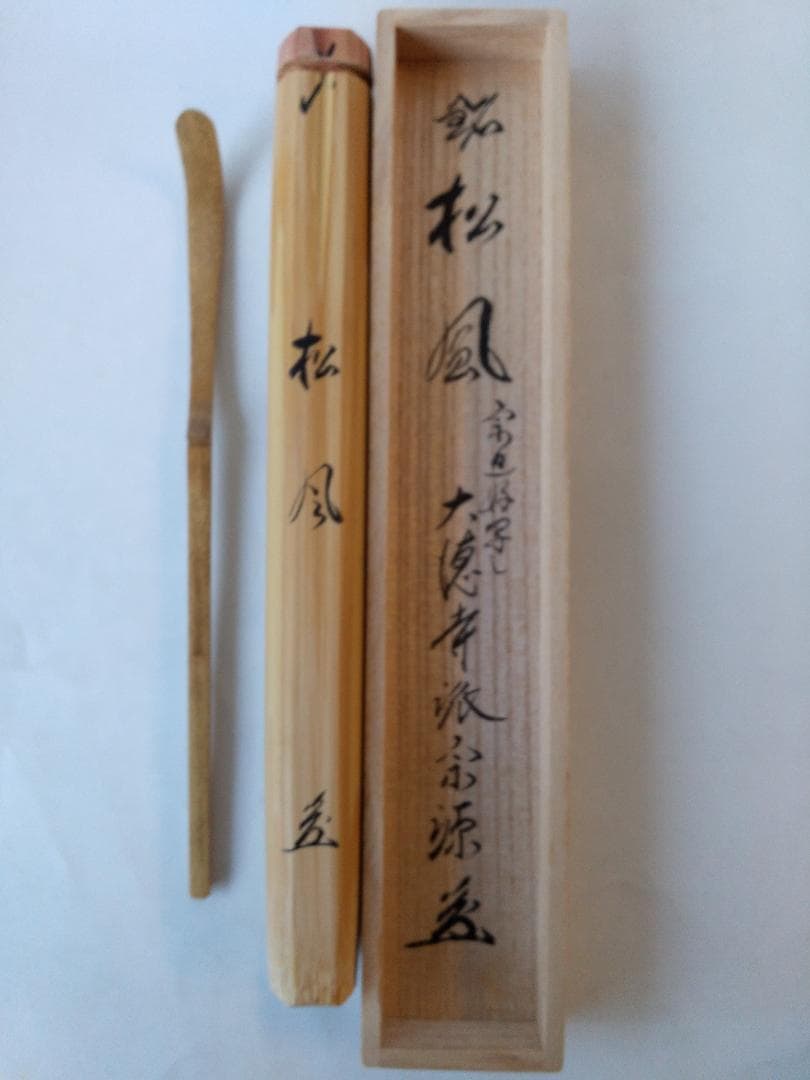 松風
銘 松風
宗旦好写し
大徳寺派宗源